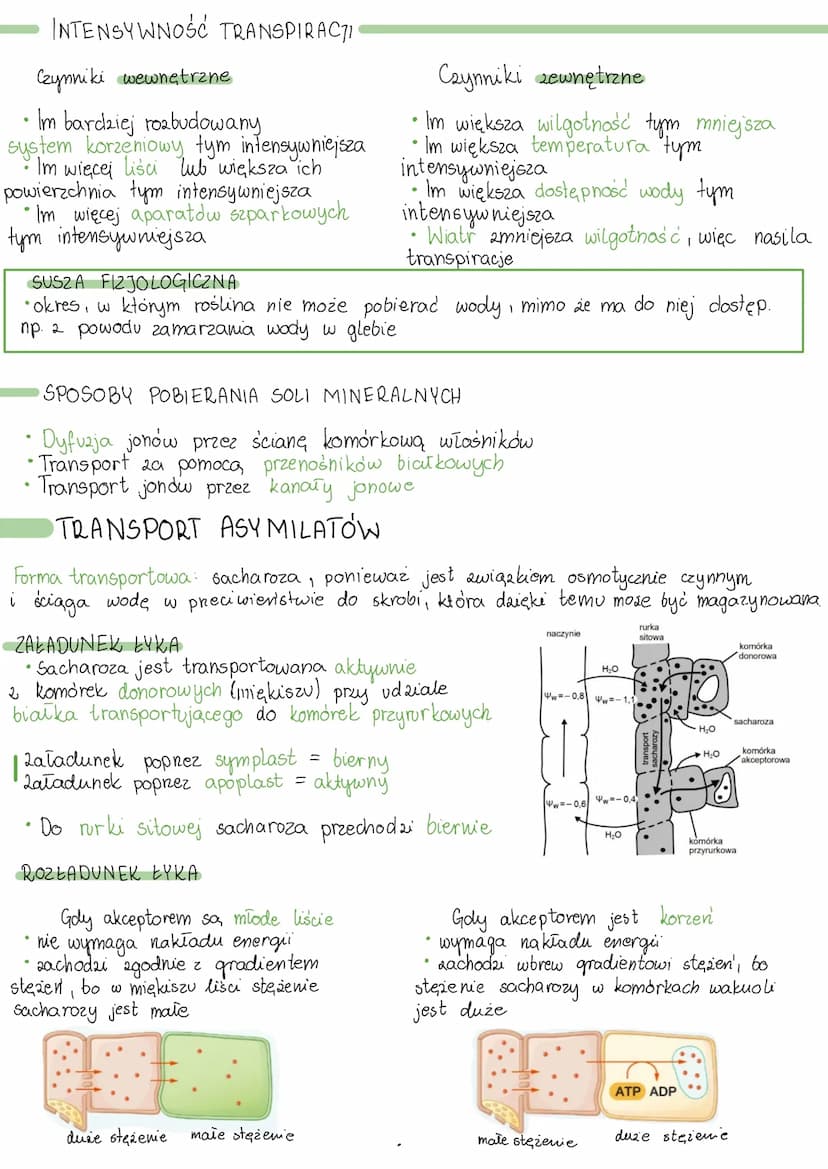 INTENSYWNOŚĆ TRANSPIRACJI
Czynniki wewnętrzne
• Im bardziej rozbudowany
system korzeniowy tym intensywniejsza
• Im więcej liści lub większa ich
powierzchnia tym intensywniejsza
• Im więcej aparatów szparkowych
tym intensywniejsza
Czynniki zewnętrzne
• Im większa wilgotność tym mniejsza
• Im większa temperatura tym
intensywniejsza
• Im większa dostępność wody tym
intensywniejsza
• Wiatr zmniejsza wilgotność, więc nasila
transpiracje
SUSZA FIZJOLOGICZNA
• okres, w którym roślina nie może pobierać wody, mimo że ma do niej dostęp.
np. z powodu zamarzania wody w glebie
SPOSOBY POBIERANIA SOLI MINERALNYCH
• Dyfuzja jonów przez ścianę komórkową włośników
• Transport za pomocą przenośników białkowych
• Transport jonów przez kanały jonowe
TRANSPORT ASYMILATÓW
Forma transportowa: sacharoza, ponieważ jest związkiem osmotycznie czynnym
i ściąga wodę w przeciwieństwie do skrobi, która dzięki temu może być magazynowana
ZAŁADUNEK ŁYKA
• Sacharoza jest transportowana aktywnie
z komórek donorowych (miękiszu) przy udziale
białka transportującego do komórek przyrurkowych
załadunek poprzez symplast = bierny
załadunek poprzez apoplast = aktywny
• Do rurki sitowej sacharoza przechodzi biernie
naczynie
rurka
sitowa
komórka
donorowa
H₂O
Ψw=−0,8
Ψw=−1,1
sacharoza
H₂O
transport
sacharozy
H₂O
komórka
akceptorowa
Ψw=−0,6
Ψw=−0,4
H₂O
komórka
przyrurkowa
ROZŁADUNEK ŁYKA
Gdy akceptorem są młode liście
• nie wymaga nakładu energii
• zachodzi zgodnie z gradientem
stężeń, bo w miękiszu liści stężenie
sacharozy jest małe
duże stężenie
małe stężenie
Gdy akceptorem jest korzeń
• wymaga nakładu energii
• zachodzi wbrew gradientowi stężeń, bo
stężenie sacharozy w komórkach wakuoli
jest duże
ATP ADP
małe stężenie
duże stężenie